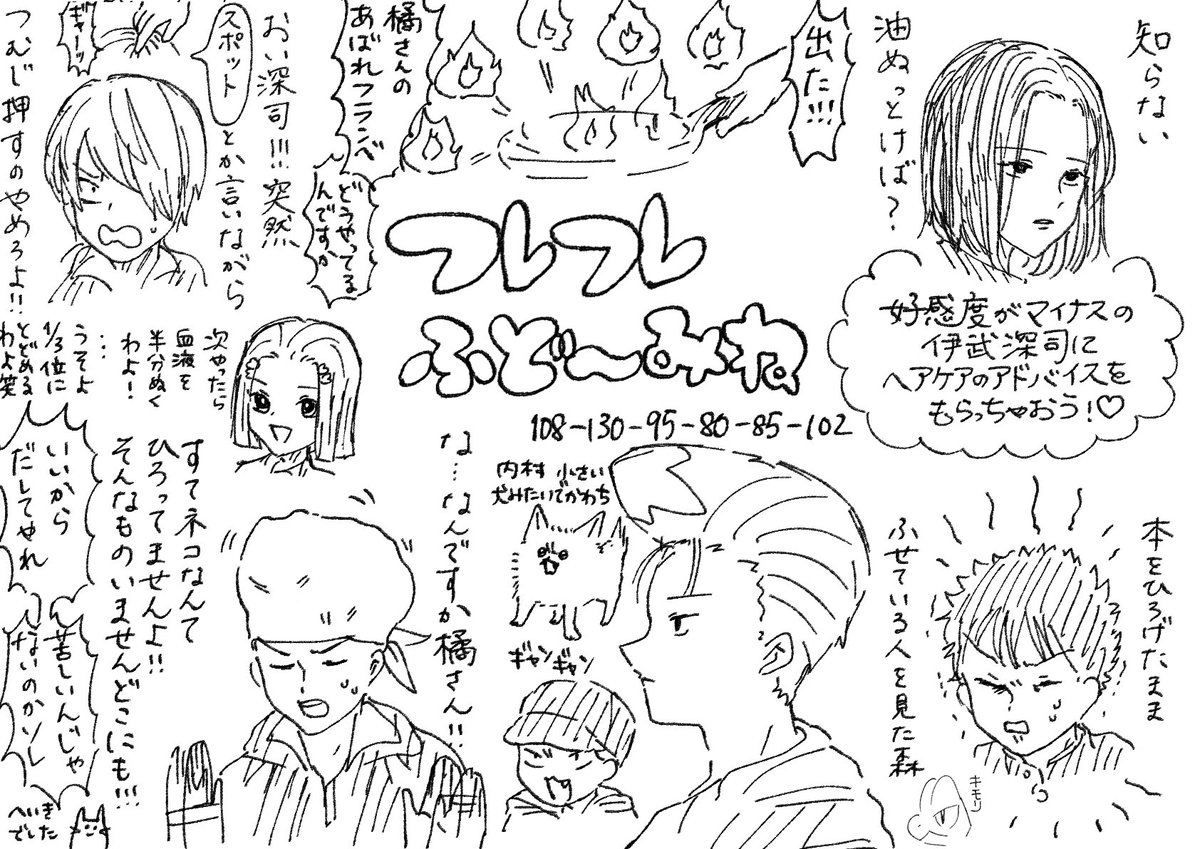 知らない
油ぬっとけば？
好感度がマイナスの
伊武深司に
ヘアケアのアドバイスを
もらっちゃおう！♡
出た!!!
橘さんの
あばれフランベ
どうやってる
んですか
フレフレ
ふど〜みね
108-130-95-80-85-102
おい深司!!!突然
スポット
とか言いながら
つむじ押すのやめろよ!!
ギャーッ
次やったら
血液を
半分ぬく
わよ！
…
うそよ
1/3位に
とどめる
わよ笑
な…なんですか橘さん!!
すてネコなんて
ひろってませんよ!!
そんなものいませんどこにも!!!
いいから
だしてやれ
苦しいんじゃ
ないのかソレ
へいき
でした
内村 小さい
犬みたいでかわち
ギャンギャン
本をひろげたまま
ふせている人を見た森
キモリ